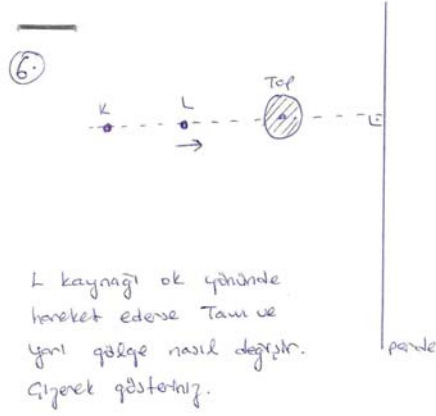 6.
K
L
Top
L kaynağı ok yönünde
hareket ederse Tam ve
yarı gölge nasıl değişir.
Çizerek gösteriniz.
perde